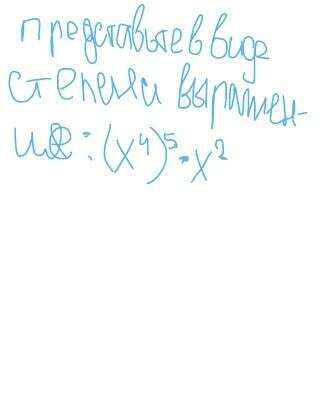 представьте в виде
степени выражен-
ие: (x⁴)⁵ · x²